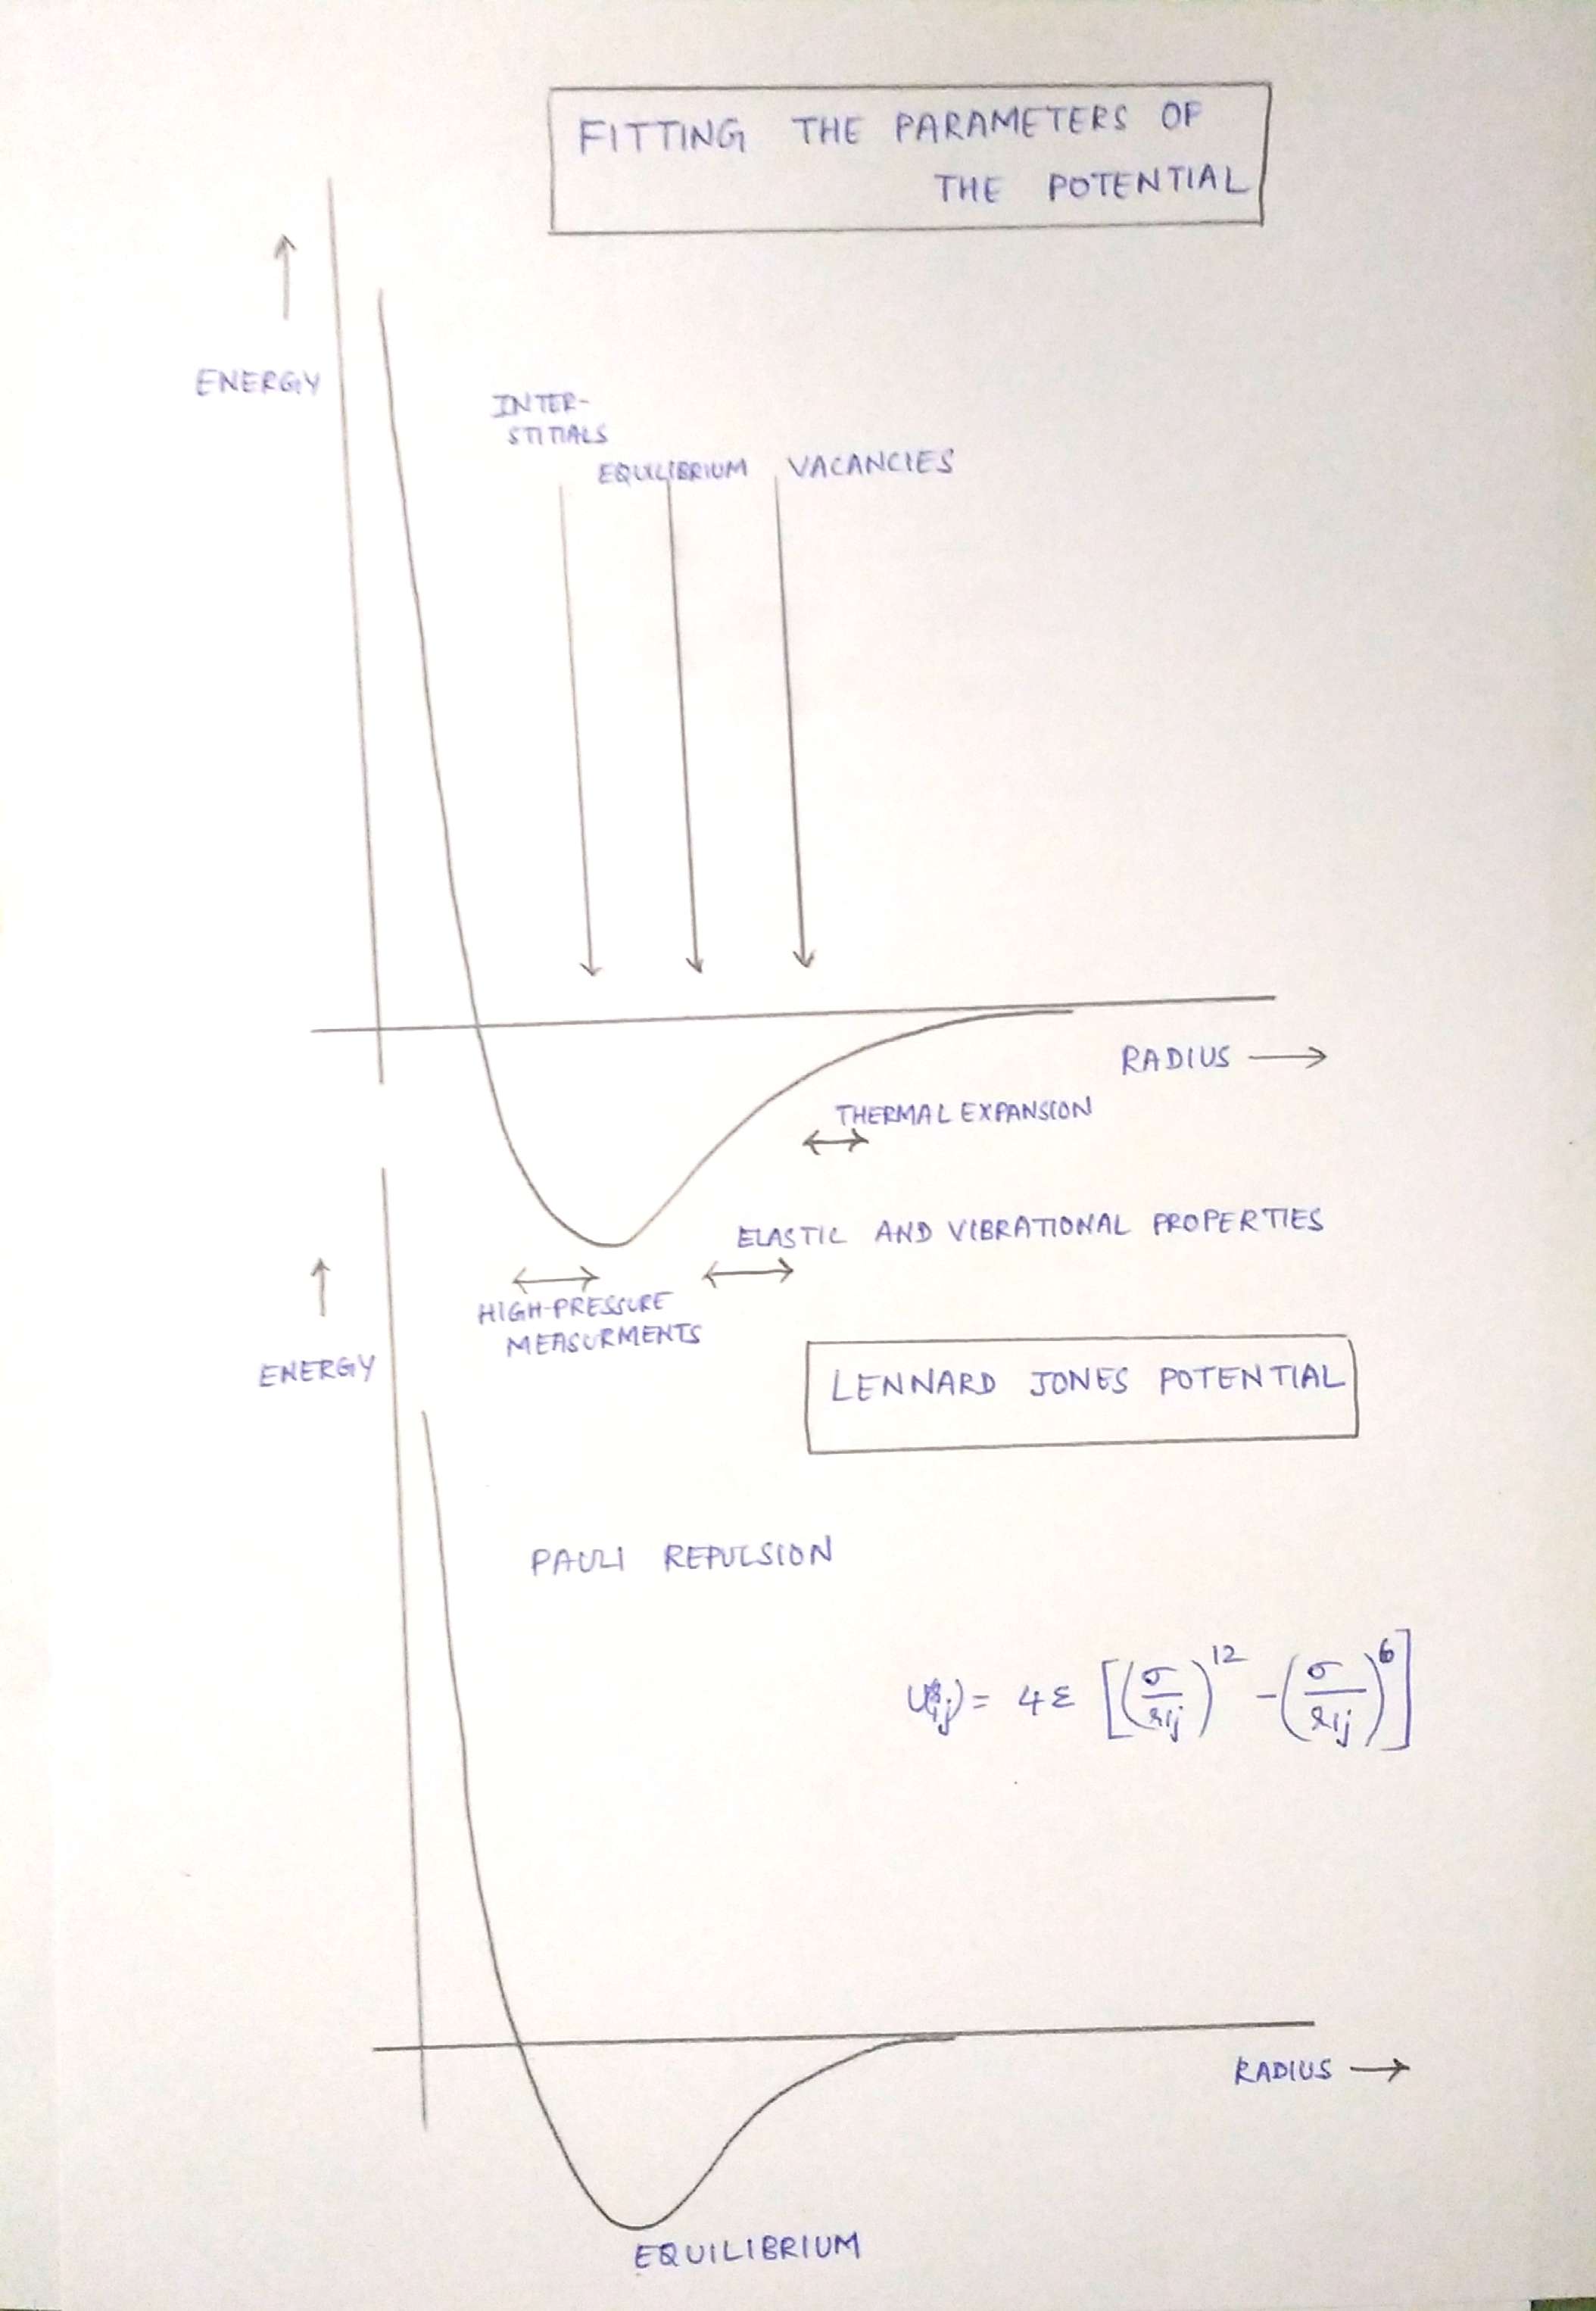 FITTING THE PARAMETERS OF
THE POTENTIAL
ENERGY
INTER-
STITIALS
EQUILIBRIUM VACANCIES
RADIUS
THERMAL EXPANSION
ELASTIC AND VIBRATIONAL PROPERTIES
HIGH-PRESSURE
MEASURMENTS
ENERGY
LENNARD JONES POTENTIAL
PAULI REPULSION
= 4ε [(σ/rij)^12 - (σ/rij)^6]
RADIUS
EQUILIBRIUM